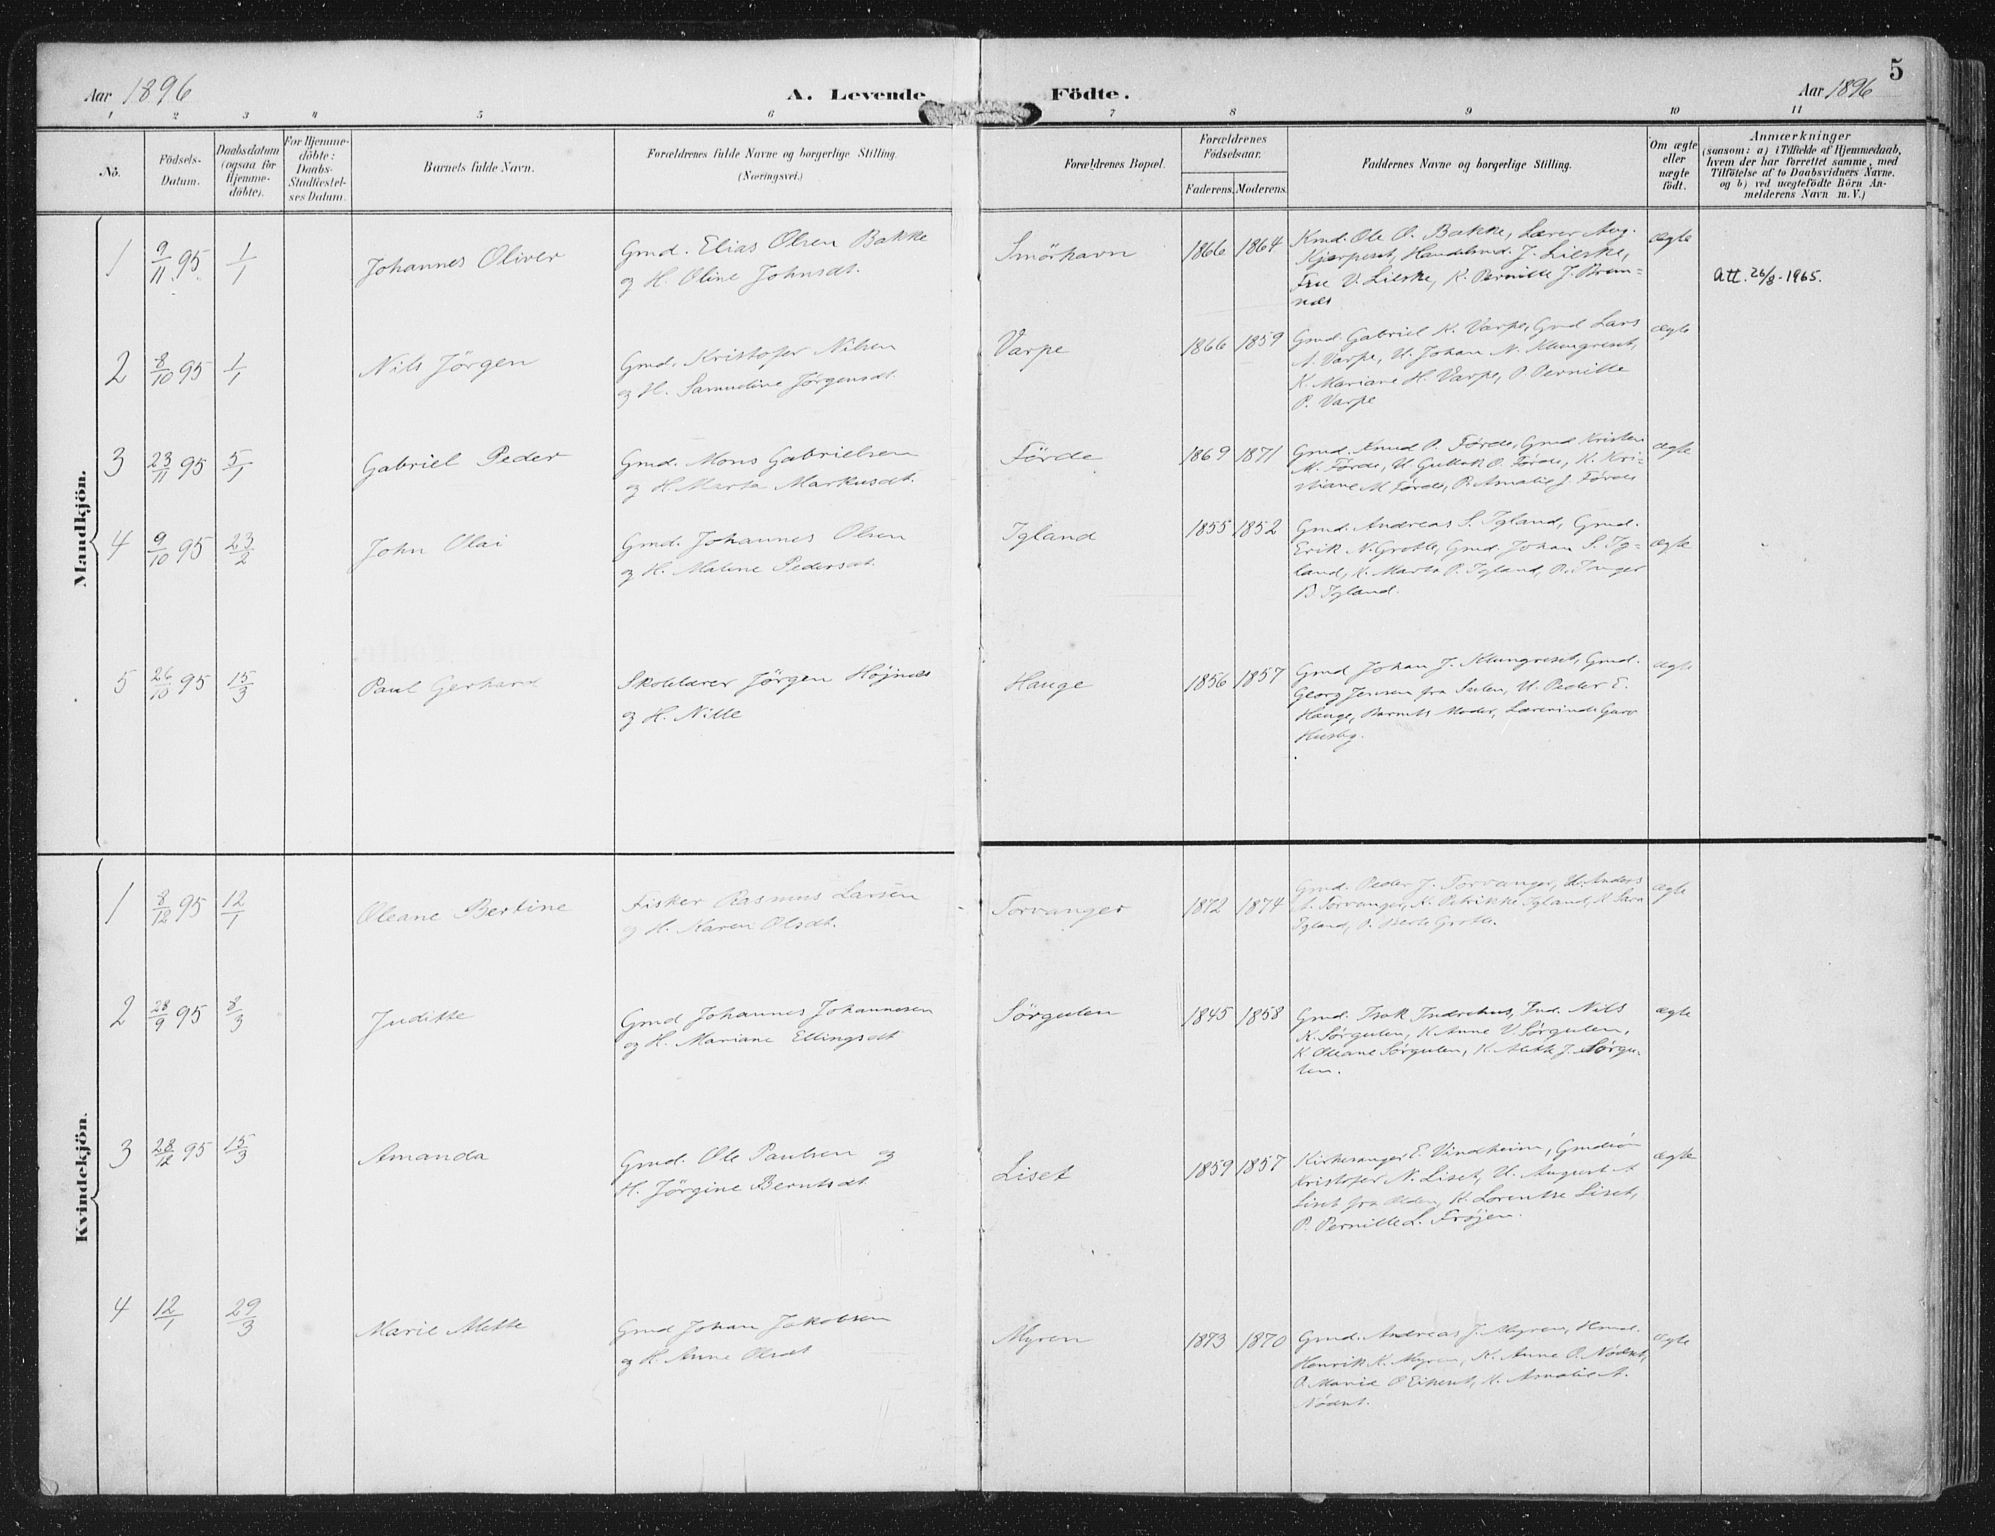 5
Aar 1896
A. Levende
Födte.
Aar 1896
1 2 3 4 5 6 7 8 9 10 11
No.
Födsels-
Datum.
Daabsdatum
(ogsaa för
Hjemme-
döbte).
For Hjemme-
döbte:
Daabs-
Stadfæstel-
ses Datum.
Barnets fulde Navn.
Forældrenes fulde Navne og borgerlige Stilling.
(Næringsvei.)
Forældrenes Bopæl.
Forældrenes
Födselsaar.
Faderens. Moderens.
Faddernes Navne og borgerlige Stilling.
Om ægte
eller
uægte
födt.
Anmærkninger
(saasom: a) i Tilfælde af Hjemmedaab,
hvem der har forrettet samme, med
Tilföielse af to Daabsvidners Navne,
og b) ved uægtefödte Börn An-
melderens Navn m. V.)
Mandkjön.
1 9/11 95 1/1 Johannes Oliver
Gmd. Elias Olsen Bakke
og H. Oline Johnsdt.
Smörhavn 1866 1864
Kmd. Ole O. Bakke, Lærer Aug.
Kjærpeset, Handelsmd. J. Lieske,
Frue V. Lieske, K. Pernille J. Brem-
nes
ægte
Att. 26/8-1965.
2 8/10 95 1/1 Nils Jörgen
Gmd. Kristofer Nilsen
og H. Samueline Jörgensdt.
Varpe 1866 1859
Gmd. Gabriel K. Varpe, Gmd Lars
A. Varpe, U. Johan N. Klungreset,
K. Mariane H. Varpe, P. Pernille
P. Varpe
ægte
3 23/11 95 5/1 Gabriel Peder
Gmd. Mons Gabrielsen
og H. Marta Markusdt.
Förde 1869 1871
Gmd. Knud P. Förde, Gmd Kristen
M. Förde, U. Gullak O. Förde, K. Kri-
stiane M. Förde, P. Amalie J. Förde
ægte
4 9/10 95 23/2 John Olai
Gmd. Johannes Olsen
og H. Malene Pedersdt.
Igland 1855 1852
Gmd. Andreas S. Igland, Gmd.
Erik N. Grotle, Gmd. Johan S. Ig-
land, K. Marta P. Igland, P. Inger
B. Igland.
ægte
5 26/10 95 15/3 Paul Gerhard
Skolelærer Jörgen Höjnes
og H. Nille
Hauge 1856 1857
Gmd Johan J. Klungreset, Gmd.
Georg Jensen fra Sulen, U. Peder E.
Hauge, Barnets Moder, Lærerinde Guro
Husby.
ægte
Kvindekjön.
1 8/12 95 12/1 Oleane Bertine
Fisker Rasmus Larsen
og H. Karen Olsdt.
Torvanger 1872 1874
Gmd. Peder J. Torvanger, U. Anders
A. Torvanger, K. Petrikke Igland, K. Sara
Igland, P. Berte Grotle.
ægte
2 28/9 95 8/3 Juditte
Gmd Johannes Johannesen
og H. Mariane Ellingsdt
Sörgulen 1845 1858
Gmd. Isak Indrehus, Ind. Nils
K. Sörgulen, K. Anne V. Sörgulen,
K Oleane Sörgulen, K. Mette J. Sörgu-
len.
ægte
3 28/12 95 15/3 Amanda
Gmd. Ole Paulsen og
H. Jörgine Berntsdt
Liset 1859 1857
Kirkesanger E. Vindheim, Gmdsön
Kristofer N. Liset, U. August A
Liset fra Alden, K. Lorentse Liset,
P. Pernille L. Fröjen.
ægte
4 12/1 29/3 Marie Mette
Gmd Johan Jakobsen
og H. Anne Olsdt
Myren 1873 1870
Gmd. Andreas J. Myren, Hmd.
Henrik K. Myren, K. Anne O. Nödset,
P. Marie O Eikeset, K. Amalie A.
Nödset.
ægte